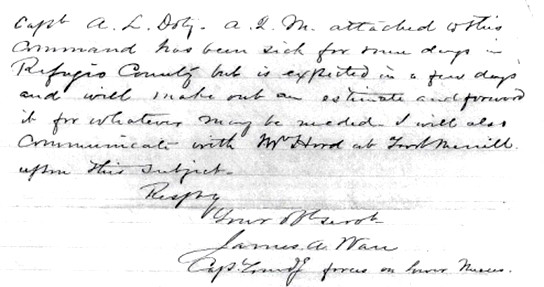 Capt A. L. Doty. A. Q. M. attached to this
Command has been sick for some days in
Refugio County but is expected in a few days
and will make out an estimate and forward
it for whatever may be needed. I will also
Communicate with Mr Hord at Fort Merrill
upon this Subject.
Respty
Your Obt servt
James. A. Ware
Capt Comdg forces on lower Nueces.